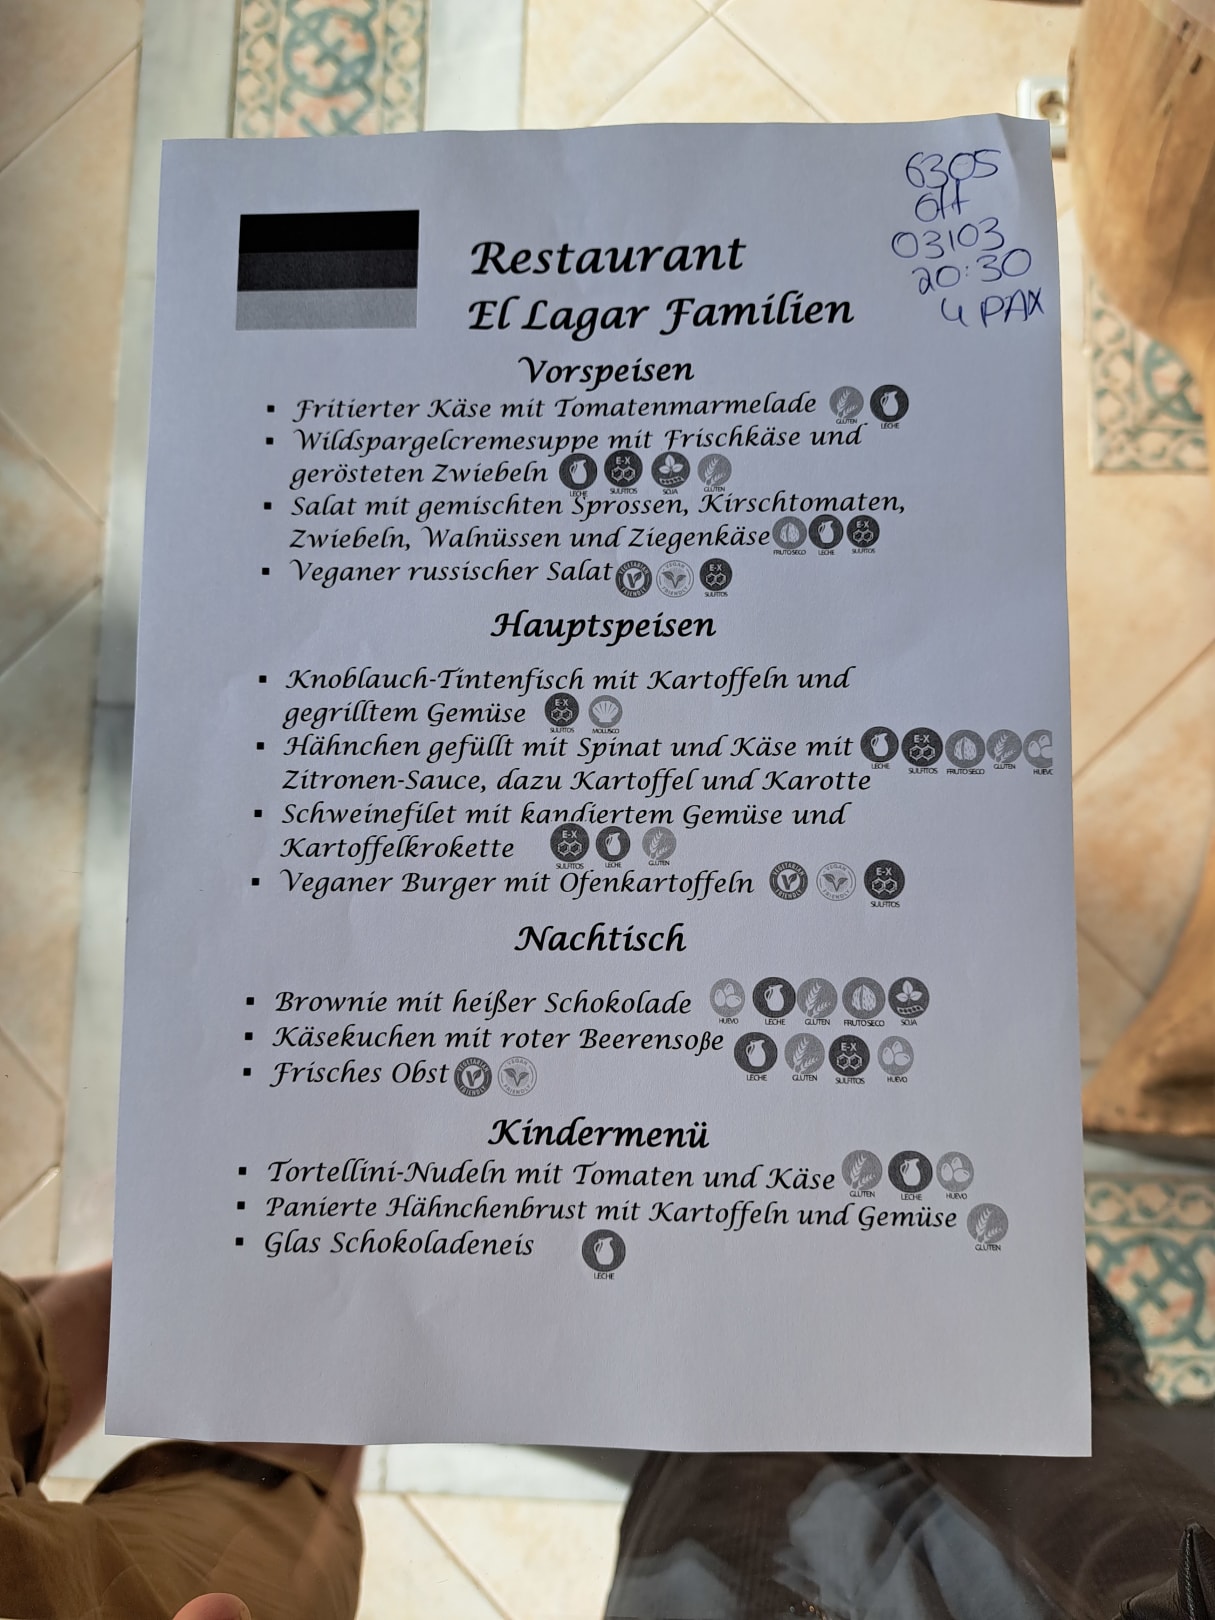 6305
Ott
03/03
20:30
4 PAX
Restaurant
El Lagar Familien
Vorspeisen
▪ Fritierter Käse mit Tomatenmarmelade GLUTEN LECHE
▪ Wildspargelcremesuppe mit Frischkäse und
gerösteten Zwiebeln LECHE E-X SULFITOS SOJA GLUTEN
▪ Salat mit gemischten Sprossen, Kirschtomaten,
Zwiebeln, Walnüssen und Ziegenkäse FRUTO SECO LECHE E-X SULFITOS
▪ Veganer russischer Salat VEGETARIAN FRIENDLY VEGAN FRIENDLY E-X SULFITOS
Hauptspeisen
▪ Knoblauch-Tintenfisch mit Kartoffeln und
gegrilltem Gemüse E-X SULFITOS MOLUSCO
▪ Hähnchen gefüllt mit Spinat und Käse mit LECHE E-X SULFITOS FRUTO SECO GLUTEN HUEVC
Zitronen-Sauce, dazu Kartoffel und Karotte
▪ Schweinefilet mit kandiertem Gemüse und
Kartoffelkrokette E-X SULFITOS LECHE GLUTEN
▪ Veganer Burger mit Ofenkartoffeln VEGETARIAN FRIENDLY VEGAN FRIENDLY E-X SULFITOS
Nachtisch
▪ Brownie mit heißer Schokolade HUEVO LECHE GLUTEN FRUTO SECO SOJA
▪ Käsekuchen mit roter Beerensoße LECHE GLUTEN E-X SULFITOS HUEVO
▪ Frisches Obst VEGETARIAN FRIENDLY VEGAN FRIENDLY
Kindermenü
▪ Tortellini-Nudeln mit Tomaten und Käse GLUTEN LECHE HUEVO
▪ Panierte Hähnchenbrust mit Kartoffeln und Gemüse GLUTEN
▪ Glas Schokoladeneis LECHE